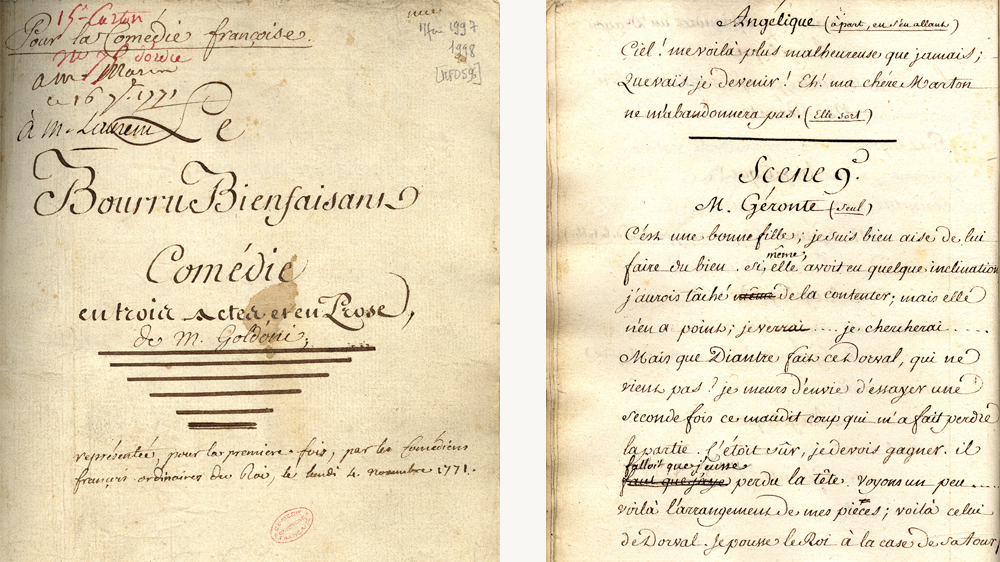 15e Carton
Pour la Comédie françoise.
a mr Marin
ce 16 7bre 1771
à M. Laurent
1997
1998
Le
Bourru Bienfaisant
Comédie
en trois Actes, et en Prose,
de M. Goldoni,
représentée, pour la première fois, par les Comédiens
françois ordinaires du Roi, le lundi 4. novembre 1771.
Angélique (à part, en s'en allant)
Ciel! me voilà plus malheureuse que jamais;
Que vais-je devenir! Eh! ma chére Marton
ne m'abandonnera pas. (Elle sort)
Scene 9e.
M. Géronte (seul)
C'est une bonne fille; je suis bien aise de lui
même,
faire du bien. si, elle avoit eu quelque inclination
j'aurois tâché même de la contenter; mais elle
n'en a point; je verrai .... je chercherai .....
Mais que Diantre fait ce Dorval, qui ne
vient pas? je meurs d'envie d'essayer une
seconde fois ce maudit coup qui m'a fait perdre
la partie. C'étoit sûr, je devois gagner. il
falloit que j'eusse
faut que j'aye perdu la tête. voyons un peu ....
voilà l'arrangement de mes pièces; voilà celui
de Dorval. Je pousse le Roi à la case de sa Tour,